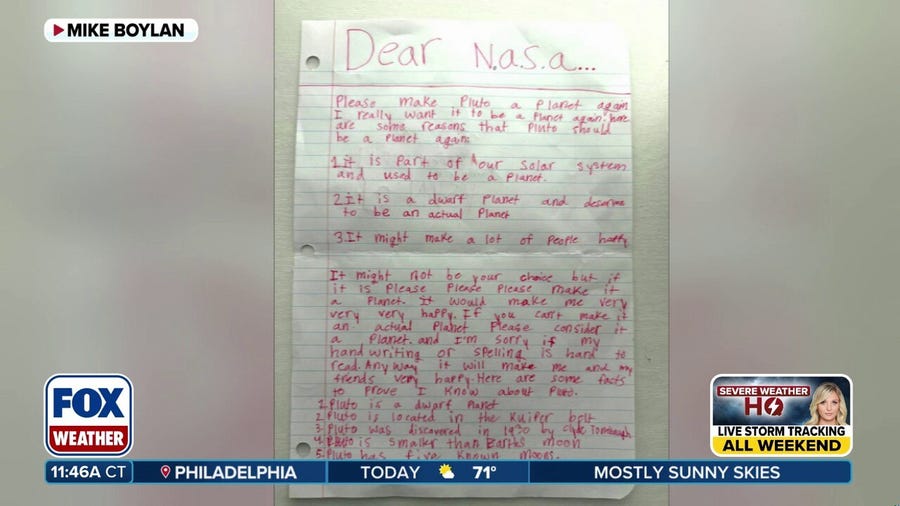 MIKE BOYLAN
Dear N.a.S.a...
Please make Pluto a Planet again
I really want it to be a Planet again. here
are some reasons that Pluto should
be a Planet again.
1.it is Part of our Solar system
and used to be a Planet.
2.it is a dwarf Planet and deserve
to be an actual Planet
3.It might make a lot of People happy
It might not be your choice but if
it is Please Please Please make it
a Planet. It would make me very
very very happy. If you can't make it
an actual Planet Please consider it
a Planet. and I'm sorry if my
hand writing or spelling is hard to
read. Any way it will make me and my
friends very happy. Here are some facts
to Prove I know about Pluto.
1.Pluto is a dwarf Planet
2.Pluto is located in the Kuiper belt
3.Pluto was discovered in 1930 by Clyde Tombaugh
4.Pluto is smaller than Earths moon
5.Pluto has five known moons.
FOX
WEATHER
SEVERE WEATHER
HQ
LIVE STORM TRACKING
ALL WEEKEND
11:46A CT
PHILADELPHIA
TODAY
71°
MOSTLY SUNNY SKIES